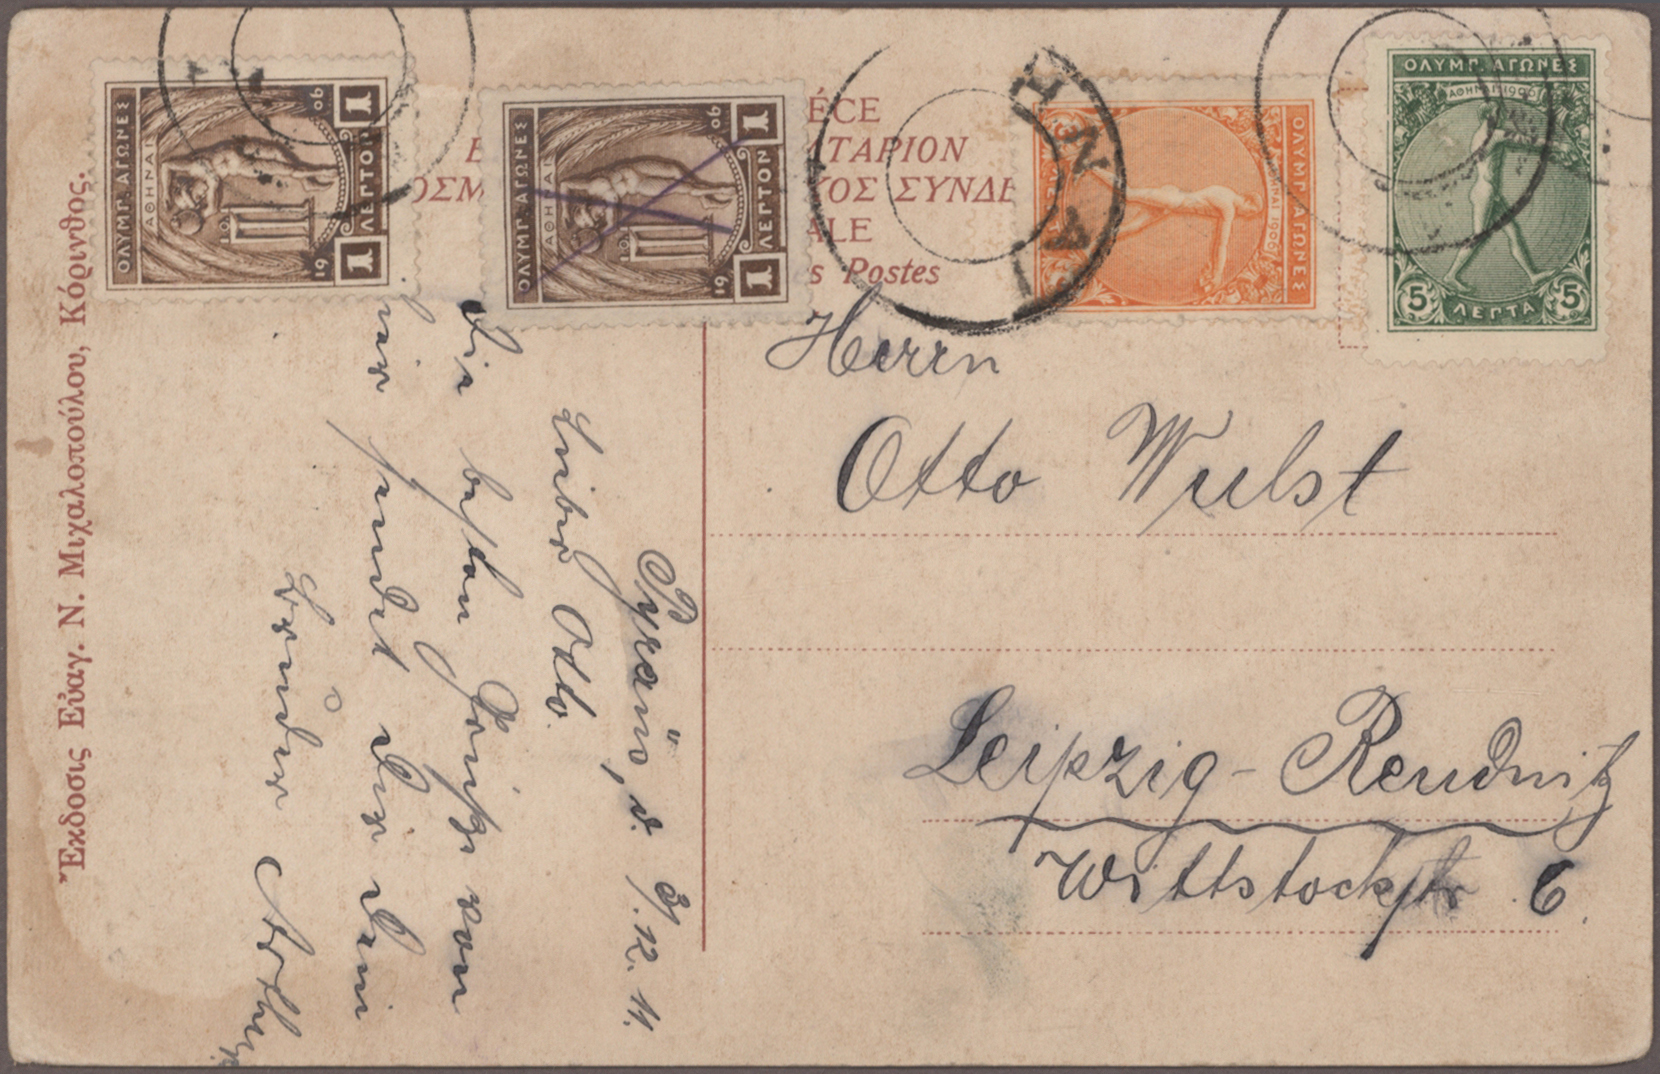 ΟΛΥΜΠ. ΑΓΩΝΕΣ
ΑΘΗΝΑΙ
19 06
1 ΛΕΠΤΟΝ 1
ΟΛΥΜΠ. ΑΓΩΝΕΣ
ΑΘΗΝΑΙ
19 06
1 ΛΕΠΤΟΝ 1
ΟΛΥΜΠ. ΑΓΩΝΕΣ
ΑΘΗΝΑΙ 1906
ΟΛΥΜΠ. ΑΓΩΝΕΣ
ΑΘΗΝΑΙ 1906
5 ΛΕΠΤΑ 5
ÈCE
ΤΑΡΙΟΝ
ΟΣΜ ΟΣ ΣΥΝΔΕ
ALE
s Postes
Ἔκδοσις Εὐαγ. Ν. Μιχαλοπούλου, Κόρινθος.
Pyräus, d. 3/.12. 11.
Lieber Otto.
Die besten Grüße von
hier sendet Dir Dein
Freund Arthur
Herrn
Otto Wulst
Leipzig-Reudnitz
Wittstockstr 6.